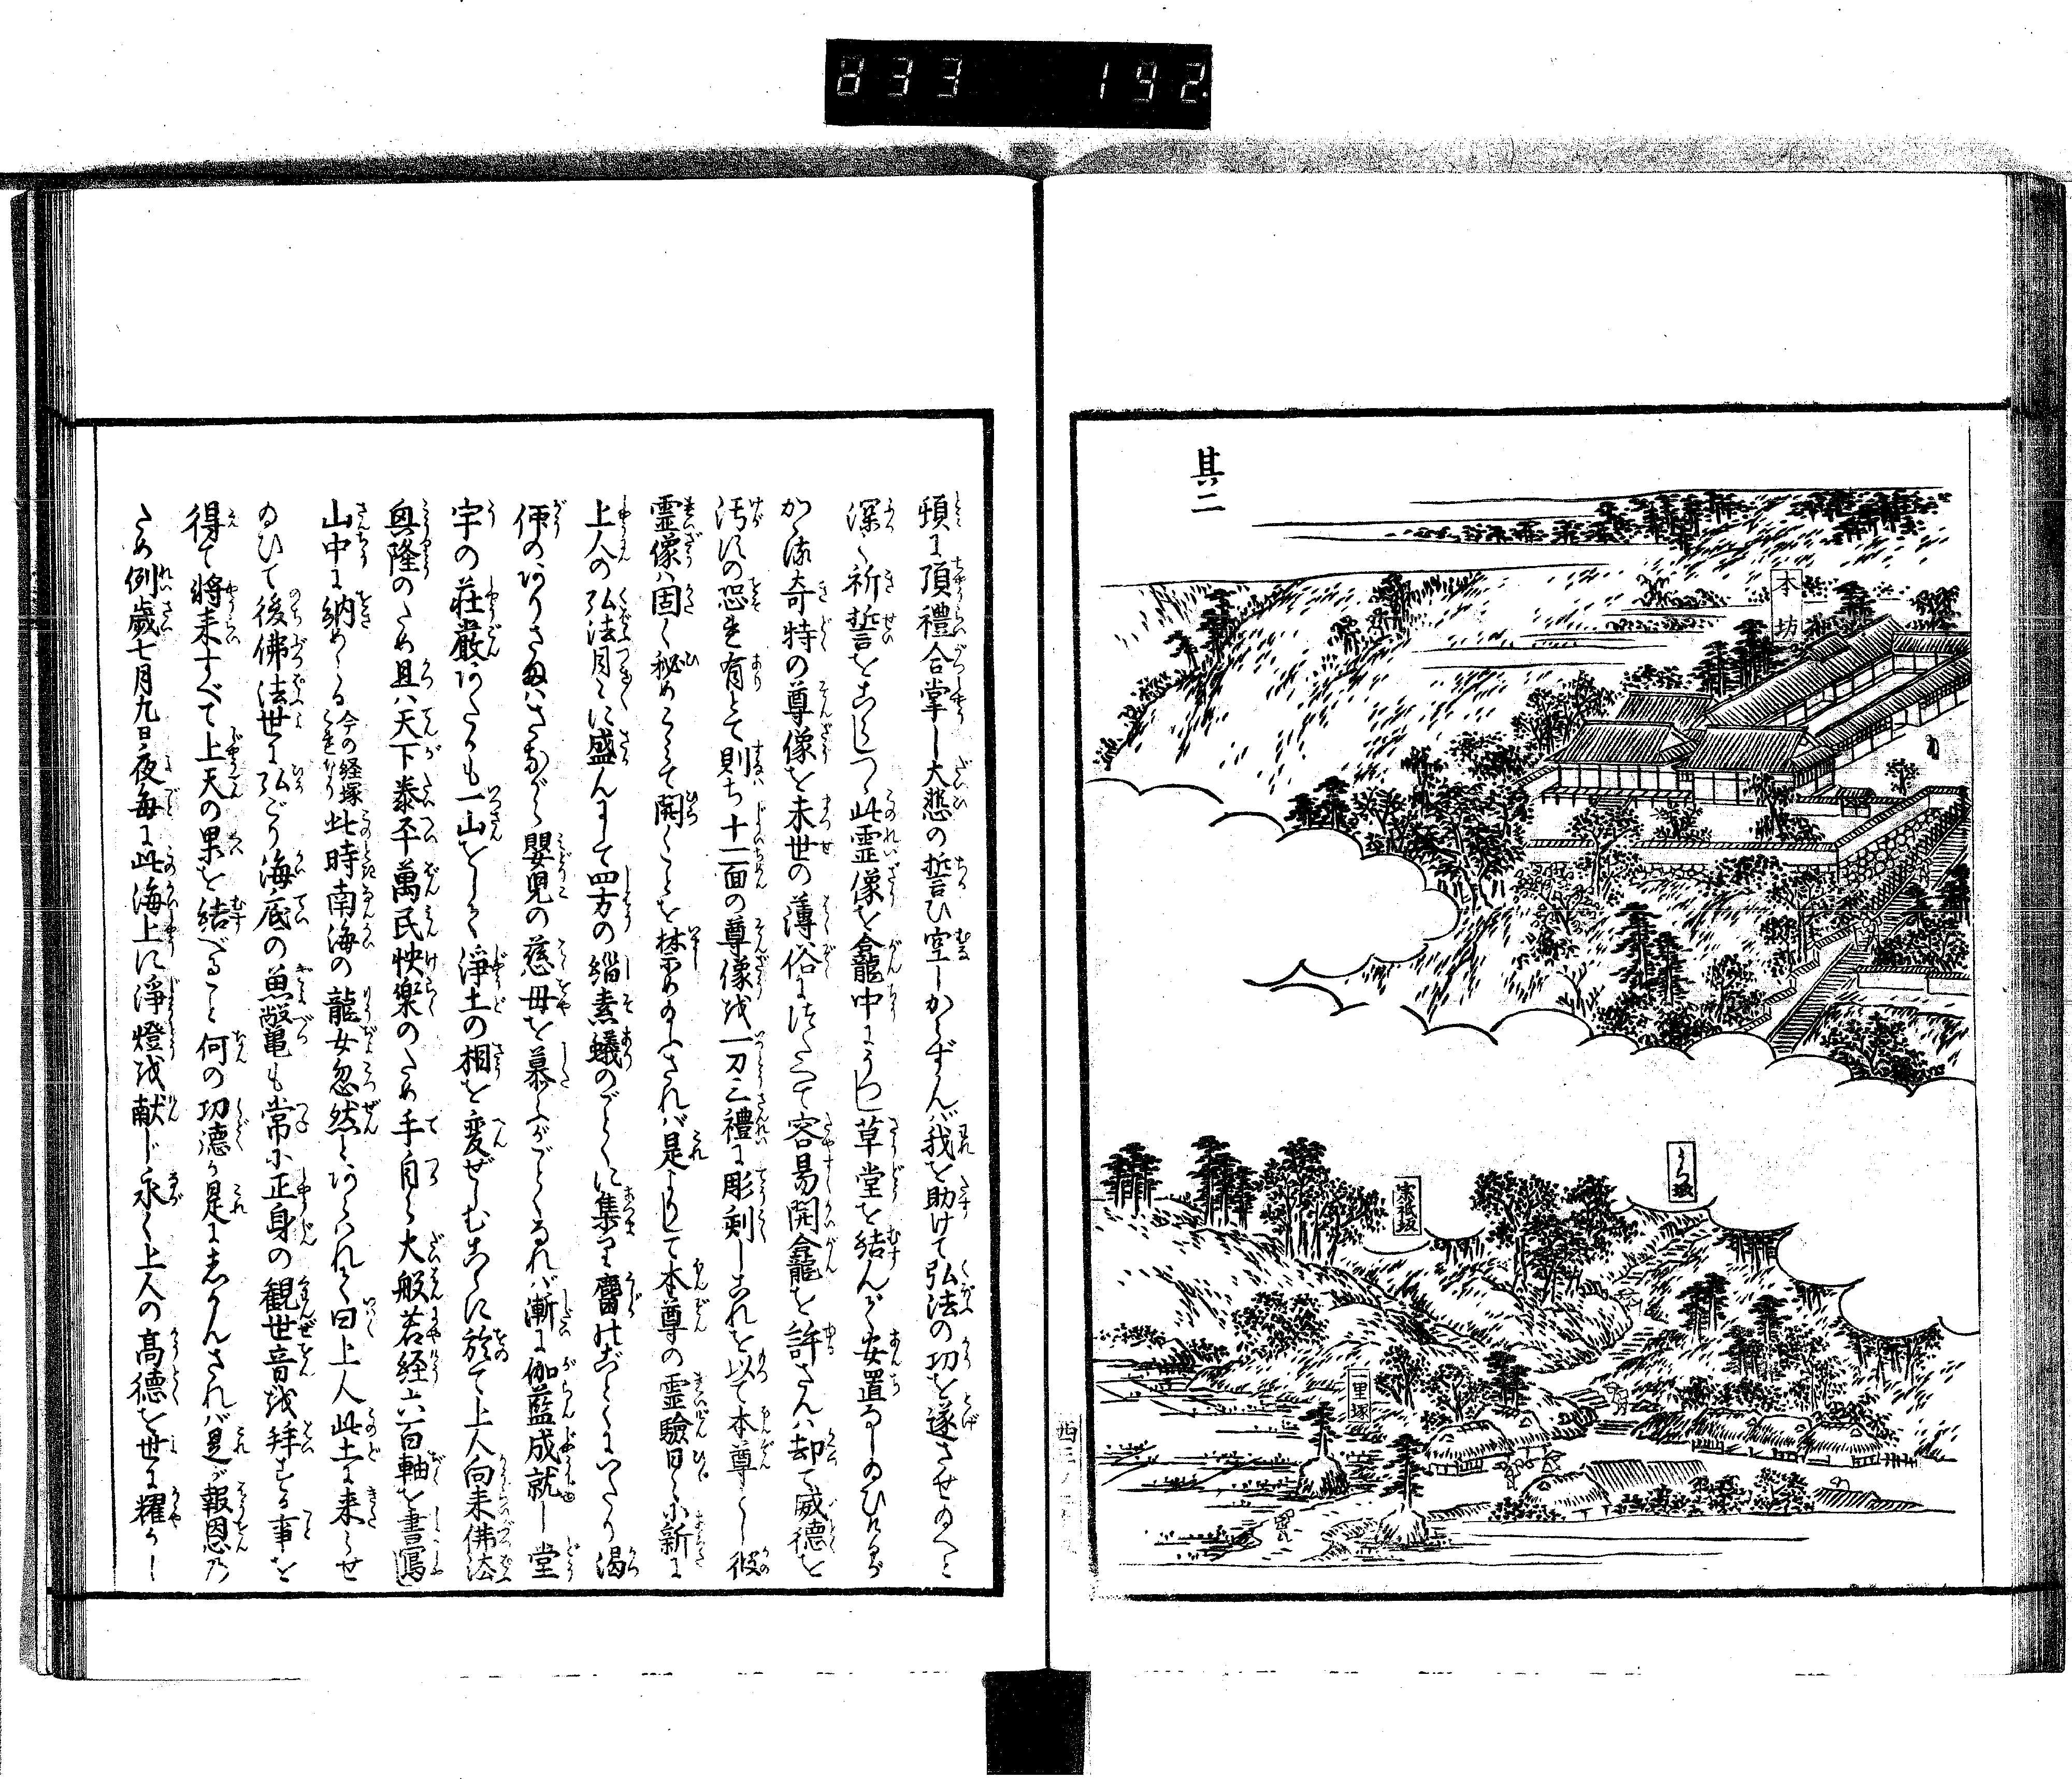 833 192.
其二
本坊
うつ坂
宗祇坂
一里塚
頓に頂禮合掌し大悲の誓ひ空しからずんバ我を助けて弘法の功を遂させ給へと
深く祈誓をこらしつゝ此霊像を龕中にうつし草堂を結んで安置
かゝる奇特の尊像を末世の薄俗に
容易開龕を許さんハ却て威徳を
汚すの恐れ有とて則ち十一面の尊像を一刀三禮に彫刻しこれを以て本尊とし彼
霊像ハ固く秘めこめて開くことを禁め給ふされバ是よりして本尊の霊験日々に新に
上人の弘法月々に盛んにして四方の緇素蟻のごとくに集り
渇
仰のありさまハさながら嬰児の慈母を慕ふがごとくなれバ漸に伽藍成就し堂
宇の荘厳あたかも一山をしく浄土の相を変ぜしむこゝに於て上人向来佛法
興隆のため且ハ天下泰平萬民快楽のため手自ら大般若経六百軸を書寫し
山中に納めらる今の経塚これなり此時南海の龍女忽然とあらハれて曰上人此土に来らせ
給ひて後佛法世に弘ごり海底の魚鼈も常に正身の観世音を拝する事を
得て將来すべて上天の果を結べること何の功徳か是にしかんされバ是が報恩の
ため例歳七月九日ノ夜毎に此海上に浄燈を献じ永く上人の高徳を世に耀かし